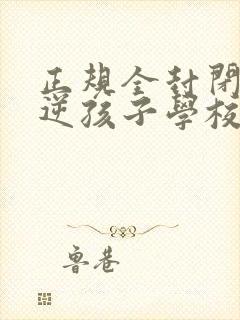 正規全封閉
逆孩子學校
魯巷